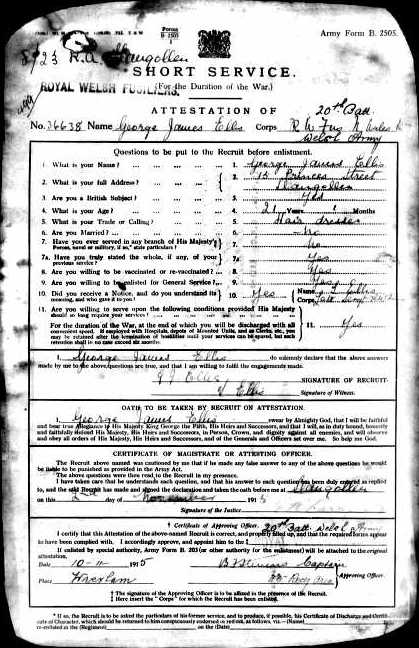 Forms
B. 2505
Army Form B. 2505.
8923 R.A. Llangollen
SHORT SERVICE.
ROYAL WELSH FUSILIERS.
(For the Duration of the War.)
ATTESTATION OF
20th Batt
No. 36638 Name George James Ellis Corps R W Fus N Wales
Welsh Army
Questions to be put to the Recruit before enlistment.
1. What is your Name? ... 1. George James Ellis
2. What is your full Address? ... 2. 15 Princes Street
Llangollen
3. Are you a British Subject? ... 3. Yes
4. What is your Age? ... 4. 21 Years Months
5. What is your Trade or Calling? ... 5. Hair dresser
6. Are you Married? ... 6. No
7. Have you ever served in any branch of His Majesty's
Forces, naval or military, if so,* state particulars? 7. No
7A. Have you truly stated the whole, if any, of your
previous service? 7A Yes
8. Are you willing to be vaccinated or re-vaccinated? ... 8. Yes
9. Are you willing to be enlisted for General Service? ... 9. Yes
10. Did you receive a Notice, and do you understand its
meaning, and who gave it to you? 10. Yes Name Ellis
Corps
11. Are you willing to serve upon the following conditions provided His Majesty
should so long require your services?
For the duration of the War, at the end of which you will be discharged with all
convenient speed. If employed with Hospitals, depots of Mounted Units, and as Clerks, etc., you
may be retained after the termination of hostilities until your services can be spared, but such
retention shall in no case exceed six months. 11. Yes
I, George James Ellis do solemnly declare that the above answers
made by me to the above questions are true, and that I am willing to fulfil the engagements made.
G J Ellis SIGNATURE OF RECRUIT.
Ellis Signature of Witness.
OATH TO BE TAKEN BY RECRUIT ON ATTESTATION.
I, George James Ellis swear by Almighty God, that I will be faithful
and bear true Allegiance to His Majesty King George the Fifth, His Heirs and Successors, and that I will, as in duty bound, honestly
and faithfully defend His Majesty, His Heirs and Successors, in Person, Crown, and dignity against all enemies, and will observe
and obey all orders of His Majesty, His Heirs and Successors, and of the Generals and Officers set over me. So help me God.
CERTIFICATE OF MAGISTRATE OR ATTESTING OFFICER.
The Recruit above named was cautioned by me that if he made any false answer to any of the above questions he would
be liable to be punished as provided in the Army Act.
The above questions were then read to the Recruit in my presence.
I have taken care that he understands each question, and that his answer to each question has been duly entered as replied
to, and the said Recruit has made and signed the declaration and taken the oath before me at Llangollen
on this day of November 1915
Signature of the Justice
† Certificate of Approving Officer. 20th Batt Welsh Army
I certify that this Attestation of the above-named Recruit is correct, and properly filled up, and that the required forms appear
to have been complied with. I accordingly approve, and appoint him to the ‡
If enlisted by special authority, Army Form B. 203 (or other authority for the enlistment) will be attached to the original
attestation.
Date 10-11- 1915 Captain
Place Wrexham Approving Officer.
† The signature of the Approving Officer is to be affixed in the presence of the Recruit.
‡ Here insert the "Corps" for which the Recruit has been enlisted.
* If so, the Recruit is to be asked the particulars of his former service, and to produce, if possible, his Certificate of Discharge and Certifi-
cate of Character, which should be returned to him conspicuously endorsed in red ink, as follows, viz.—(Name)
re-enlisted in the (Regiment) on the (Date)